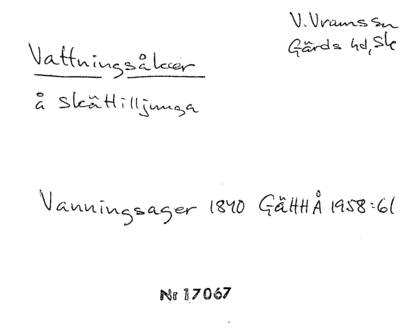 V. Vramssn
Gärds hd, Sk
Vattningsåker
å Skättilljunga
Vanningsager 1840 GäHHÅ 1958:61
Nr 17067